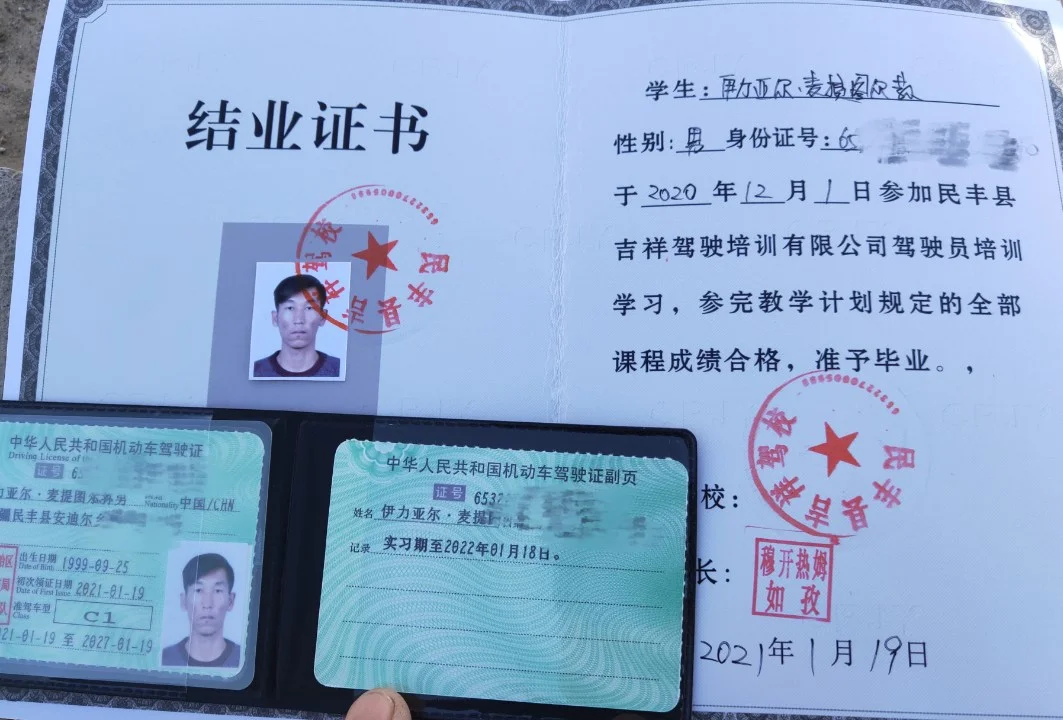 结业证书
学生：伊力亚尔·麦提图尔荪
性别：男 身份证号：65
于2020年12月1日参加民丰县
吉祥驾驶培训有限公司驾驶员培训
学习，参完教学计划规定的全部
课程成绩合格，准予毕业。，
校：
长：
2021年1月19日
民丰县吉祥驾校
民丰县吉祥驾校
穆开热姆
如孜
中华人民共和国机动车驾驶证
Driving License of
证号 6
力亚尔·麦提图尔荪 男 Nationality 中国/CHN
疆民丰县安迪尔
出生日期 Date of Birth 1999-09-25
初次领证日期 Date of First Issue 2021-01-19
准驾车型 Class C1
21-01-19 至 2027-01-19
中华人民共和国机动车驾驶证副页
证号 6532
姓名 伊力亚尔·麦提
记录 实习期至2022年01月18日。